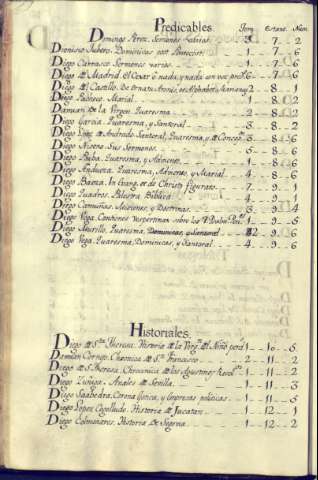 Predicables
Tom. Estant. Núm.
Domingo Perez. Sermones 7 2
Dionisio Rubero. Dominicas post Pentecost. 1 7 6
Diego Carrasco Sermones varios. 1 7 6
Diego de Madrid. El Cesar ò nada, y nada 7 6
Diego del Castillo. De Ornatu Aronis, et Alphabetū Marianū 2 8 1
Diego Pacheco. Marial. 1 8 2
Damian de la Virgen. Quaresma 2 8 2
Diego Garcia. Quaresma, y Santoral 3 8 2
Diego Lopez de Andrade. Santoral, Quaresma, y 8 6
Diego Niseno. Sus Sermones. 5 8 6
Diego Buba. Quaresma, y Adviento. 1 8 6
Diego Andueza. Quaresma, Adviento, y Marial. 4 8 6
Diego Baeza. In Evang. et de Christo figurato. 7 9 1
Diego Quadros. Palestra Biblica 4 9 1
Diego Camuñas. Misiones, y Doctrinas. 3 9 4
Diego Vega. Conciones Vespertinas sobre los 7 1 9 5
Diego Murillo. Quaresma, Dominicas, y Santoral 9 6
Diego Vega. Quaresma, Dominicas, y Santoral 4 9 6
Historiales
Diego de Historia de la del Niño 1 10 5
Damian Cornejo. Chronica de Sn. Francisco 2 11 2
Diego de Sta. Theresa. Chronica de los Agustinos 1 11 2
Diego Zuñiga. Anales de Sevilla. 1 11 3
Diego Saabedra. Corona Gotica, y Empresas politicas 1 11 5
Diego Lopez Cogolludo. Historia de Jucatan 1 12 1
Diego Colmenares. Historia de Segovia 1 12 2